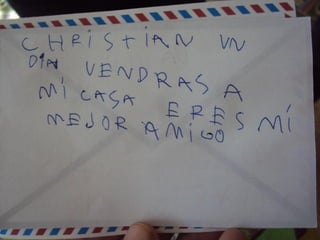 CHRISTIAN UN
DIA VENDRAS A
MI CASA ERES MÍ
MEJOR AMIGO